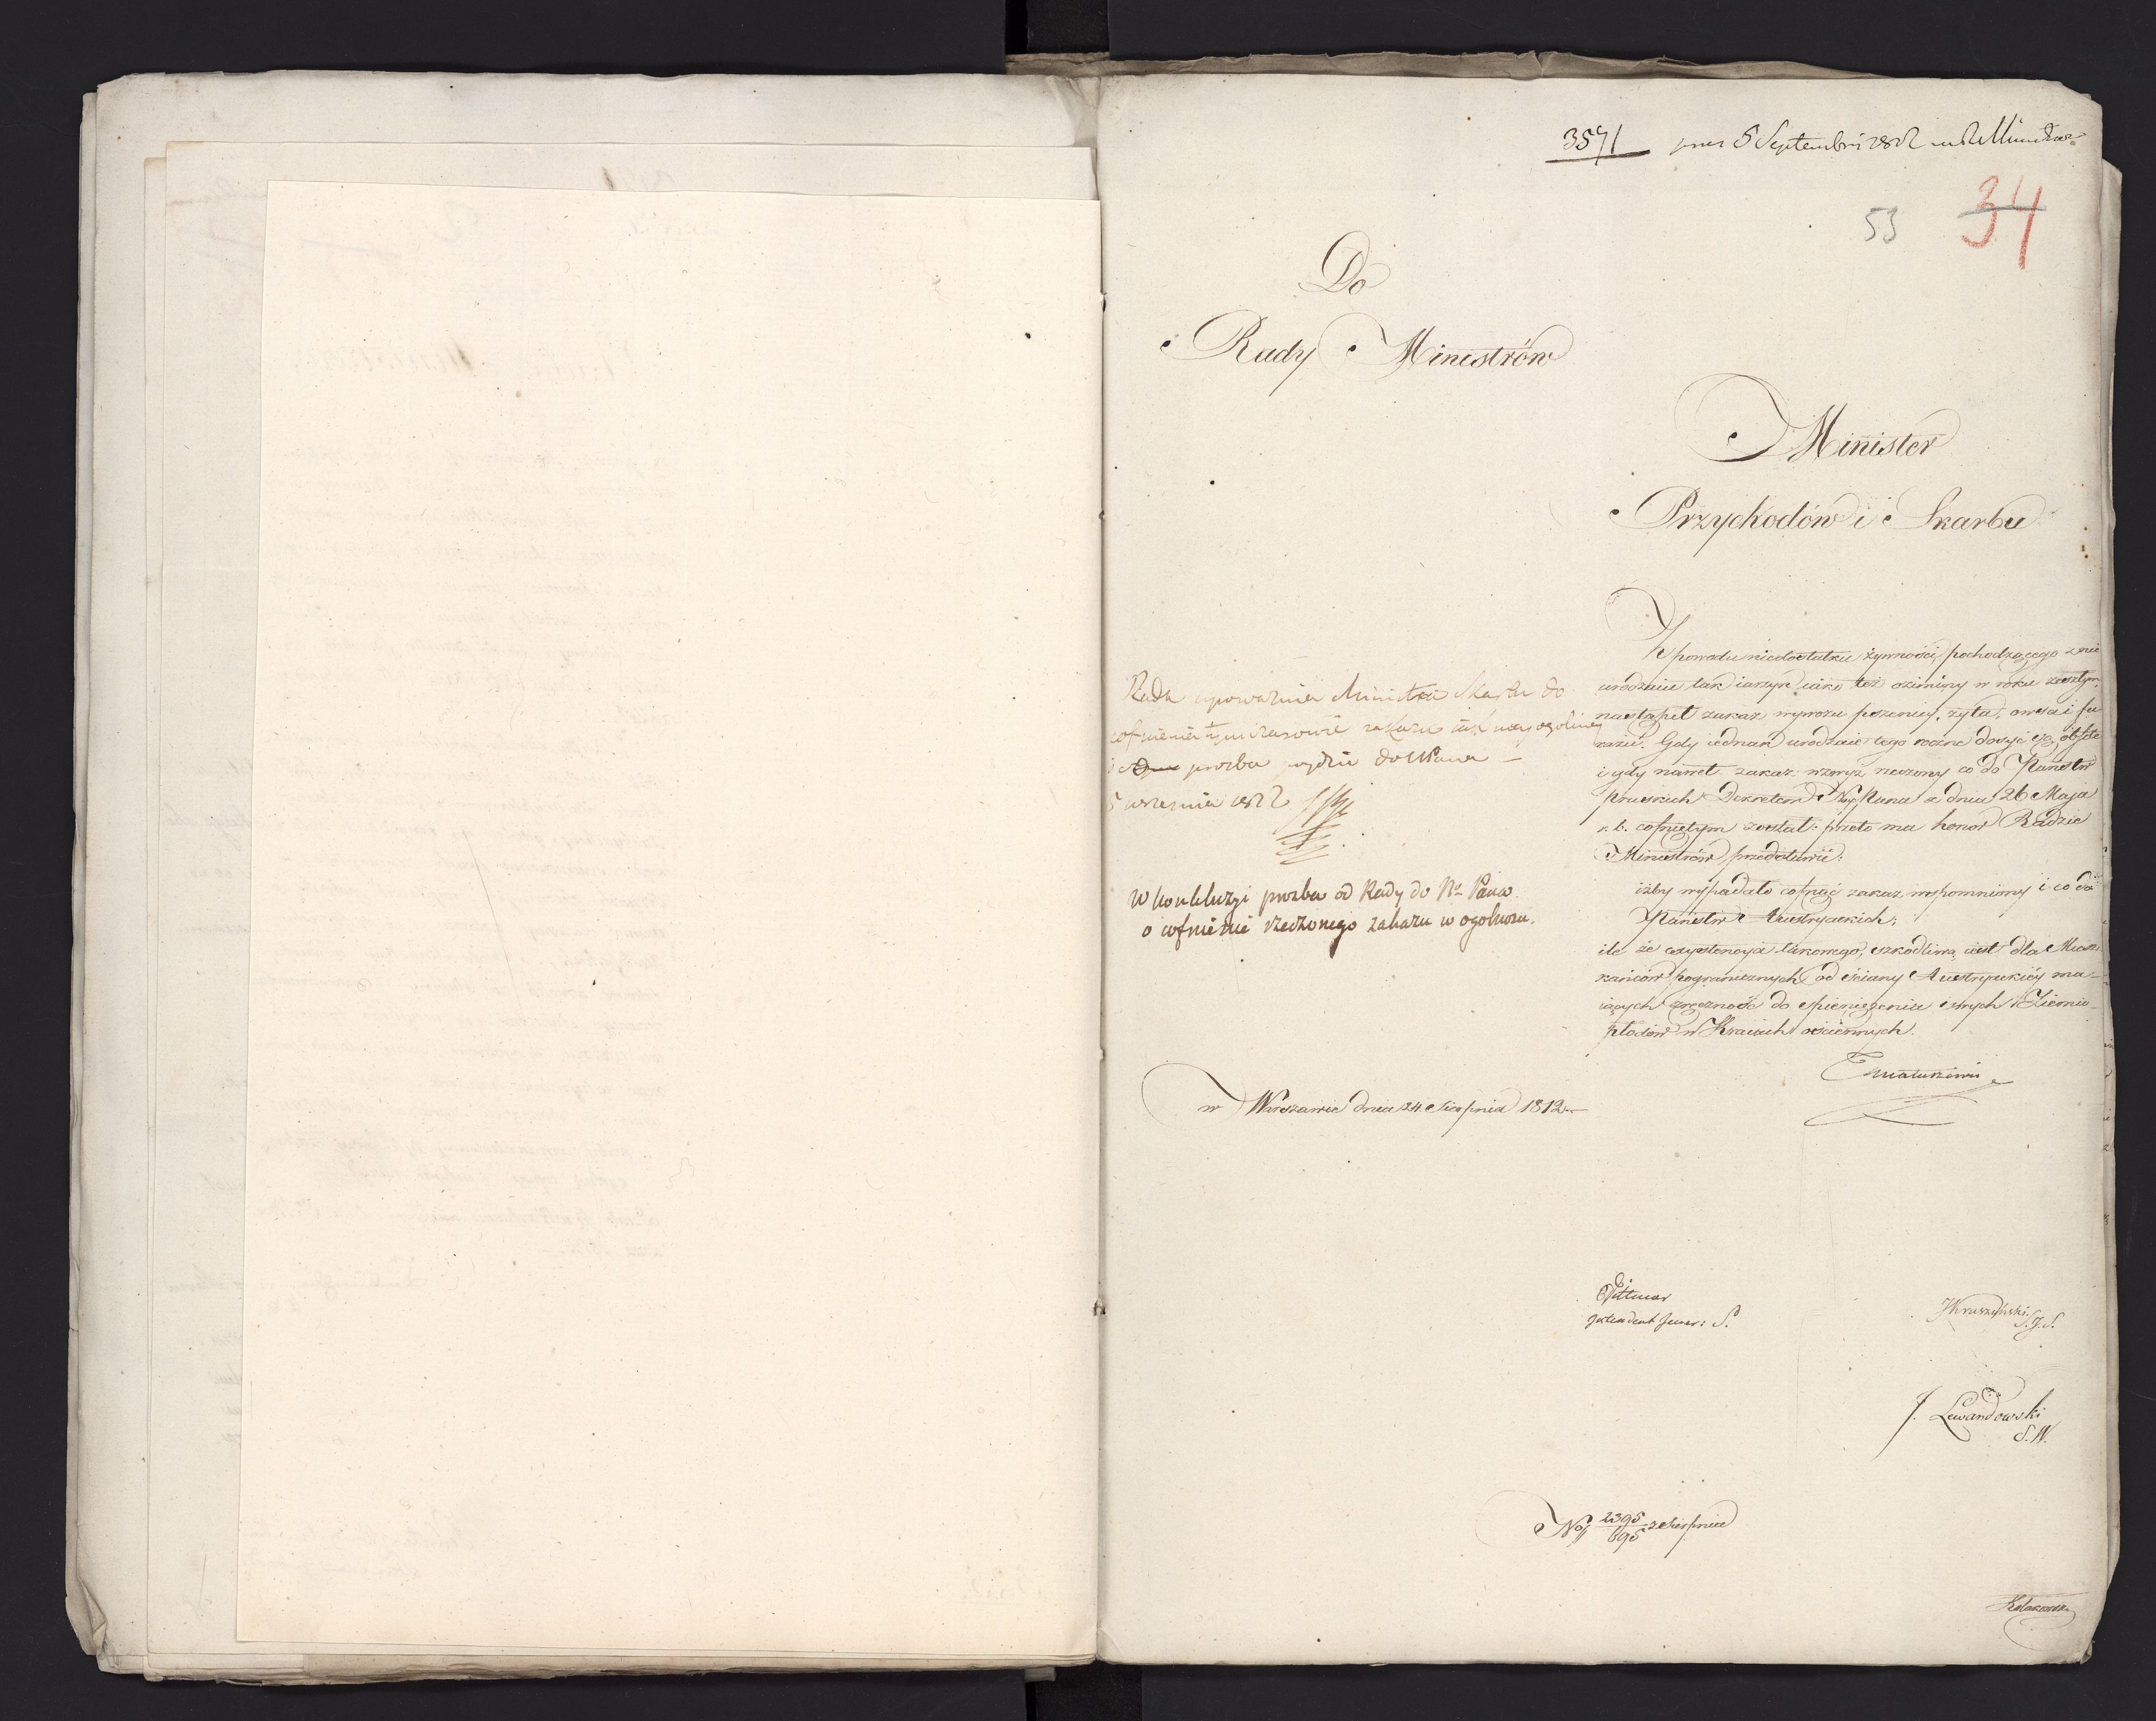 3571 pres 5 Septembris 1812
53 34
Do
Rady Ministrów
Minister
Przychodów i Skarbu
Z powodu niedostatku żywności, pochodzącego z nie
urodzaiu tak iarzyn iako też oziminy w roku zeszłym,
nastąpił zakaz wywozu pszenicy, żyta, owsa i fu
razu. Gdy iednak urodzaie tego roczne dosyć są obfite
i gdy nawet zakaz wzwyż rzeczony co do Państw
Pruskich Dekretem Nay: Pana z dnia 26 Maja
r. b. cofniętym został: przeto ma honor Radzie
Ministrów przedstawić:
iżby wypadało cofnąć zakaz wspomniony i co do
Państw Austryackich;
ile że exystencya takowego, szkodliwą iest dla Miesz
kańców pogranicznych od ściany Austryackiéy ma-
iących zręczność do spieniężenia swych Ziemio-
płodów w Kraiach ościennych.
Rada upoważnia Ministra Skarbu do
cofnienia tymczasowie zakazu iak nayogólniey
i prozba pojdzie do NPana —
5 września 1812
W konkluzyi prozba od Rady do No Pana
o cofnienie rzeczonego zakazu w ogolności.
w Warszawie dnia 24 Sierpnia 1812.
Dittmar
Intendent Gener: S.
Kruszyński
S.J.S.
J. Lewandowski
S.W.
No 2395/695 z Sierpnia